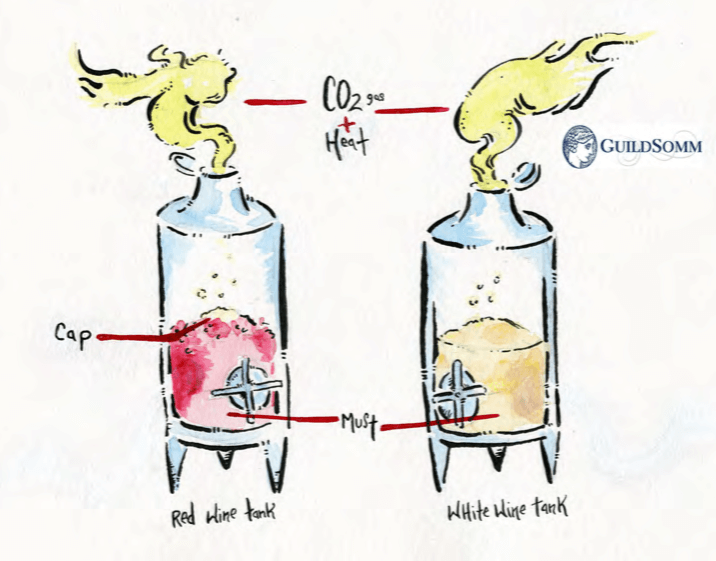 CO2 gas
+
Heat
GUILDSOMM
Cap
Must
Red Wine tank
WHite Wine tank